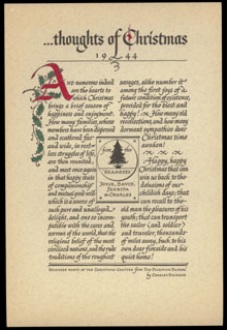 ...thoughts of Christmas
1944
3
Are numerous indeed
are the hearts to
which Christmas
brings a brief season of
happiness and enjoyment.
How many families, whose
members have been dispersed
and scattered far
and wide, in rest-
less struggles of life,
are then reunited,
and meet once again in
that happy state
of companionship
and mutual goodwill,
which is a source of
such pure and unalloyed
delight, and one so incom-
patible with the cares and
sorrows of the world, that the
religious belief of the most
civilised nations, and the rude
traditions of the roughest
from the
CHANDLERS
JOYCE, DAVID,
& CHARLES
savages, alike number it
among the first joys of a
future condition of existence,
provided for the blest and
happy! How many old
recollections, and how many
dormant sympathies does
Christmas time
awaken!
Happy, happy
Christmas, that can
win us back to the
delusions of our
childish days; that
can recall to the old
man the pleasures of his
youth; that can transport
the sailor (and soldier)
and traveler, thousands of
miles away, back to his
own dear fireside and his
quiet home!
from The Pickwick Papers
by Charles Dickens